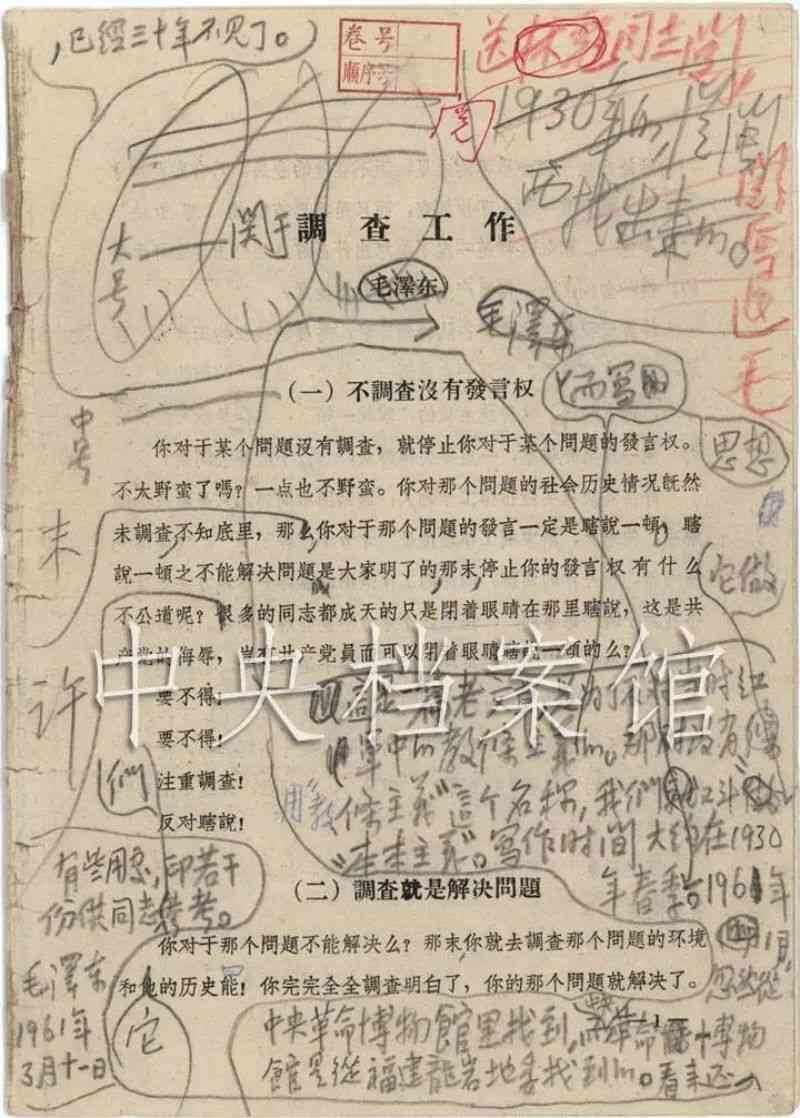 ，已經三十年不見了。
卷号
順序号
送 同志閱
1930年
找出来的。
閱后退毛
大号
関于調查工作
毛澤东
毛澤东
而寫的
（一）不調查沒有發言权
中号
思想
你对于某个問題沒有調查，就停止你对于某个問題的發言权。
不太野蛮了嗎？一点也不野蛮。你对那个問題的社会历史情况旣然
未調查不知底里，那么你对于那个問題的發言一定是瞎說一頓。瞎
說一頓之不能解决問題是大家明了的，那末，停止你的發言权有什么
不公道呢？很多的同志都成天的只是閉着眼睛在那里瞎說，这是共
产党員的侮辱，岂有共产党員而可以閉着眼睛瞎說一頓的么？
末
它做
中央档案馆
許
要不得！
要不得！
們
注重調查！
反对瞎說！
這是一篇老文章，是为了反对当时红
軍中的教條主義 的。那时没有
用“教條主義”這个名称，我們叫它做
“本本主義”。寫作时间大约在1930
年春季。1961年
1月，
忽然從
有些用处，印若干
份供同志参考。
毛澤东
1961年
3月十一日
（二）調查就是解决問題
你对于那个問題不能解决么？那末你就去調查那个問題的环境
和他的历史能！你完完全全調查明白了，你的那个問題就解决了。
它
中央革命博物館里找到， 革命博物
館是從福建龍岩地委找到的。看来还